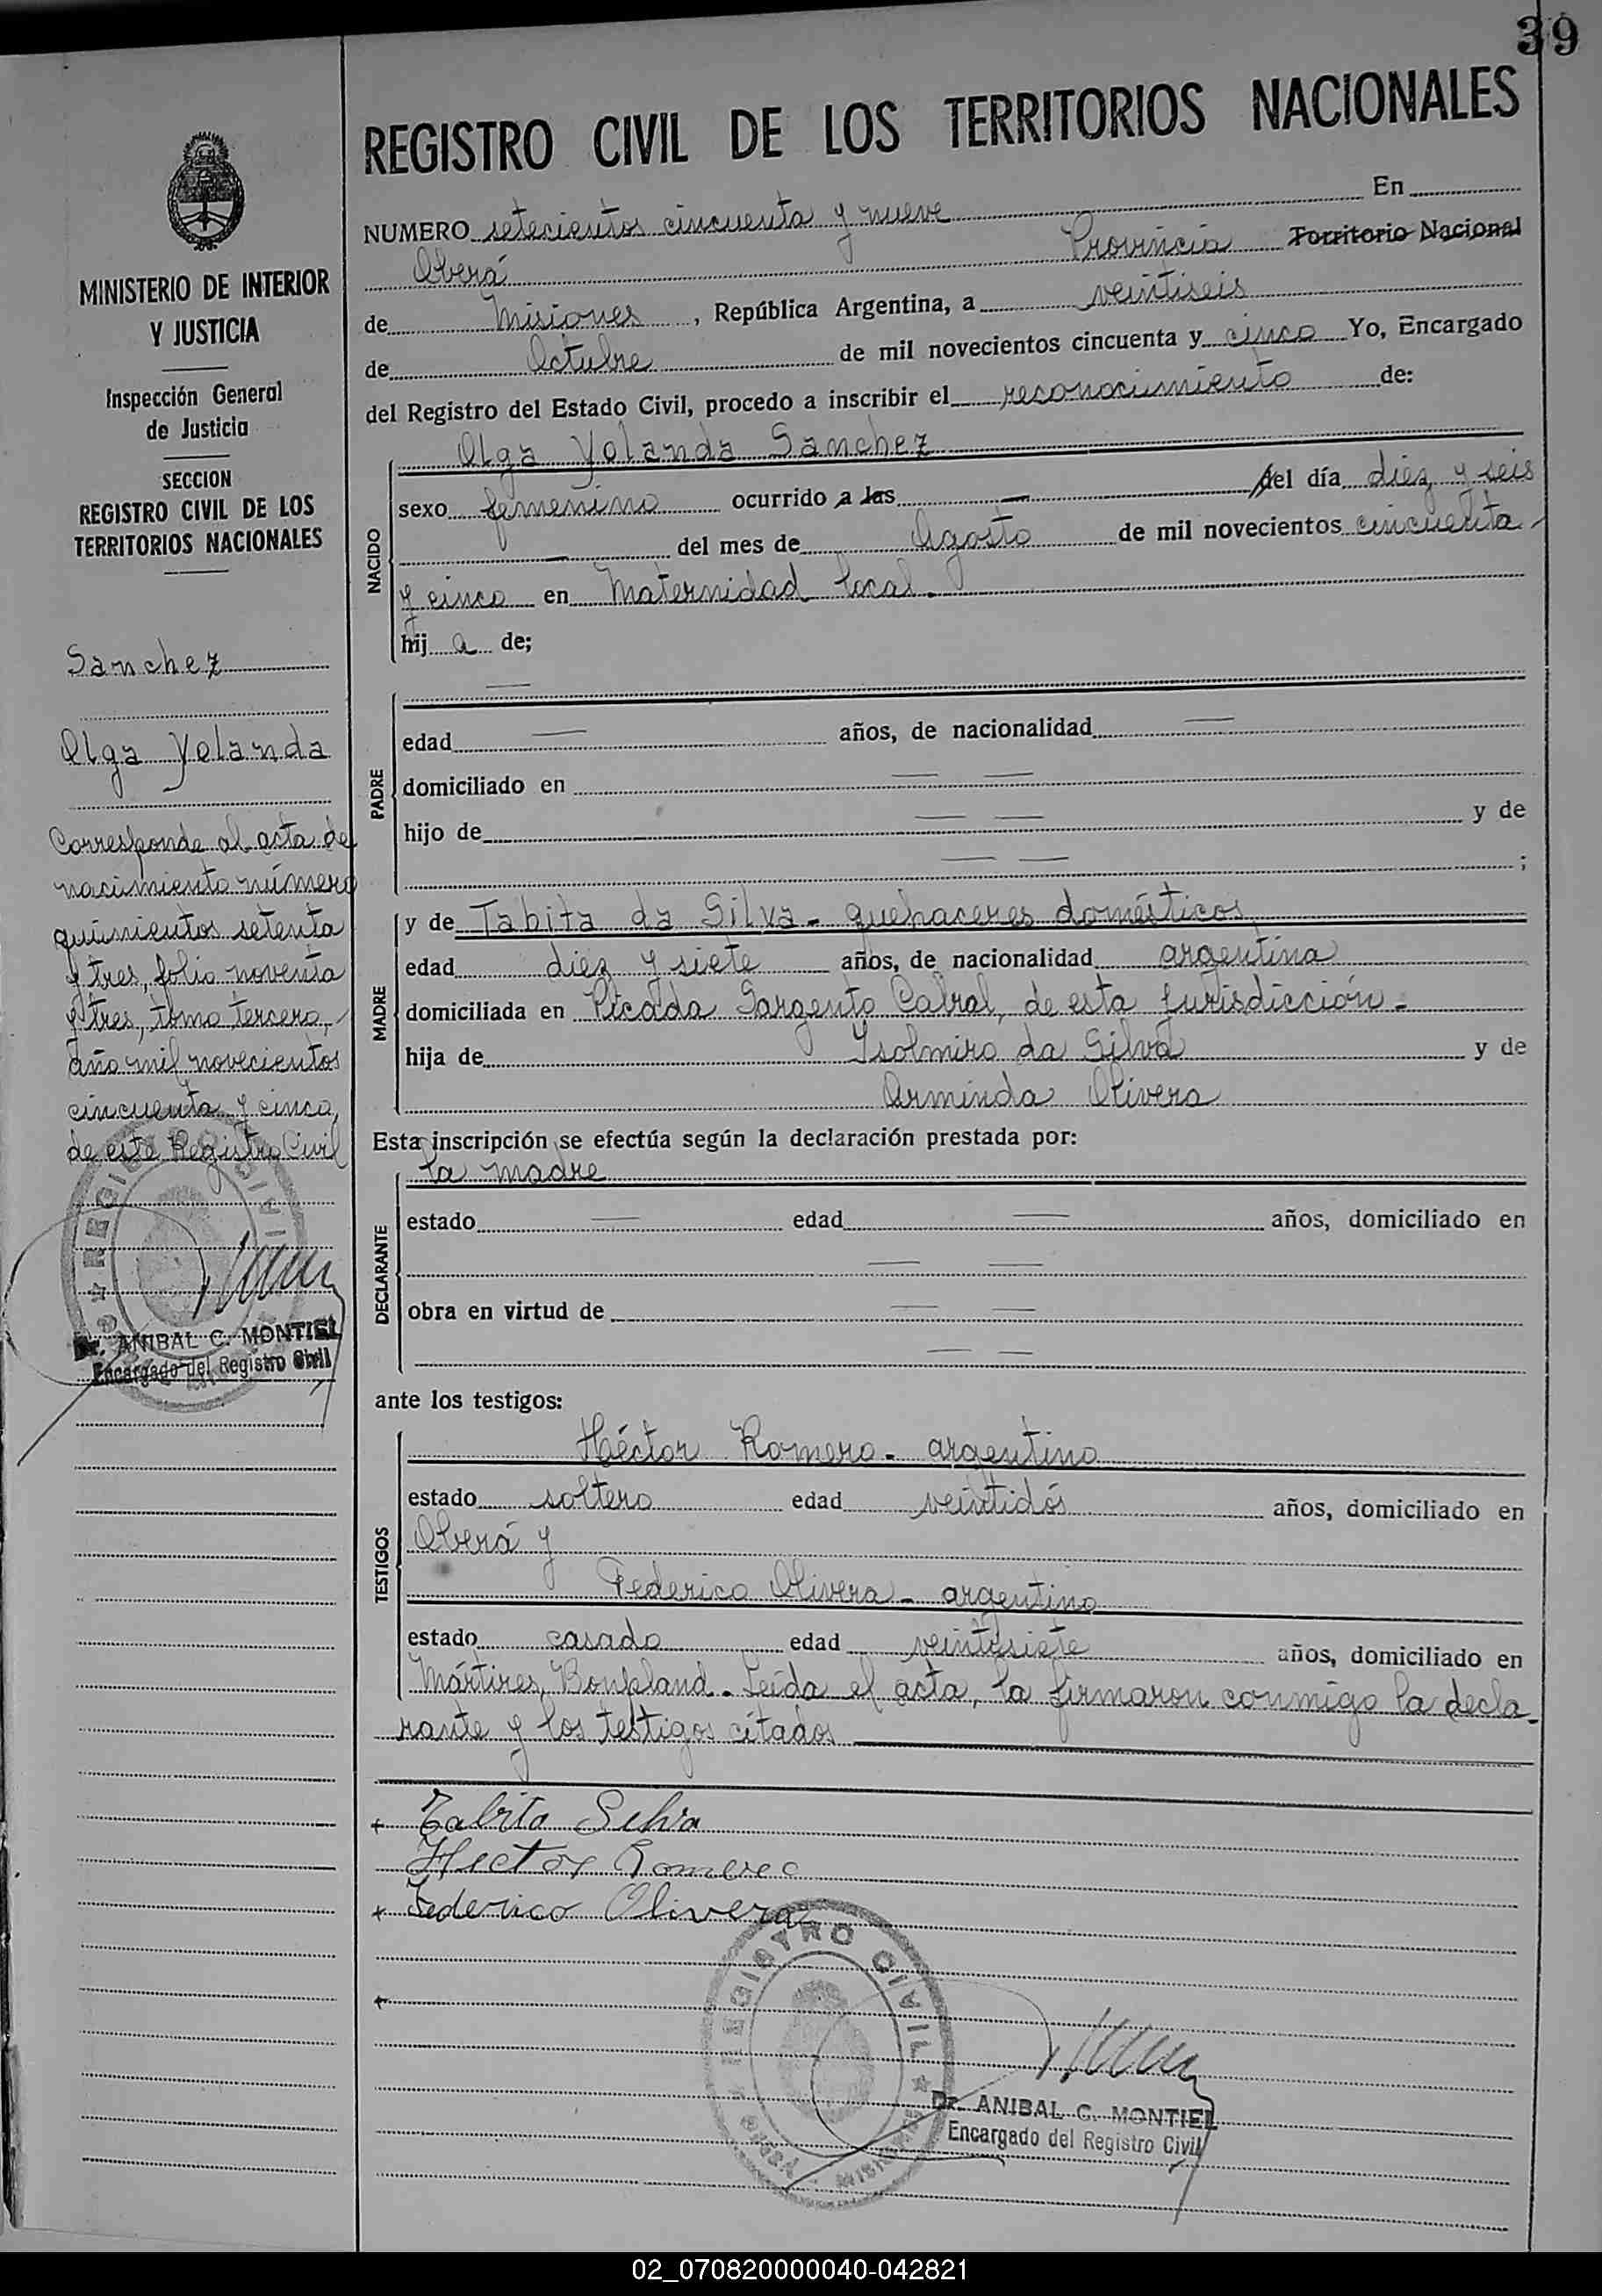 39
REGISTRO CIVIL DE LOS TERRITORIOS NACIONALES
MINISTERIO DE INTERIOR
Y JUSTICIA
Inspección General
de Justicia
SECCION
REGISTRO CIVIL DE LOS
TERRITORIOS NACIONALES
Sanchez
Olga Yolanda
Corresponde al acta de
nacimiento número
quinientos setenta
y tres, folio noventa
y tres, tomo tercero,
año mil novecientos
cincuenta y cinco,
de este Registro Civil
Dr. ANIBAL C. MONTIEL
Encargado del Registro Civil
NUMERO setecientos cincuenta y nueve En
Oberá Provincia Territorio Nacional
de Misiones, República Argentina, a veintiseis
de Octubre de mil novecientos cincuenta y cinco Yo, Encargado
del Registro del Estado Civil, procedo a inscribir el reconocimiento de:
NACIDO
Olga Yolanda Sanchez
sexo femenino ocurrido a las — del día diez y seis
— del mes de Agosto de mil novecientos cincuenta
y cinco en Maternidad local.
hij a de;
PADRE
—
edad — años, de nacionalidad —
domiciliado en — —
hijo de — — y de
— — ;
MADRE
y de Tabita da Silva - quehaceres domésticos
edad diez y siete años, de nacionalidad argentina
domiciliada en Picada Sargento Cabral, de esta Jurisdicción -
hija de Isolmiro da Silva y de
Arminda Olivera
Esta inscripción se efectúa según la declaración prestada por:
DECLARANTE
la madre
estado — edad — años, domiciliado en
— —
obra en virtud de — —
— —
ante los testigos:
TESTIGOS
Héctor Romero - argentino
estado soltero edad veintidós años, domiciliado en
Oberá y
Federico Olivera - argentino
estado casado edad veintisiete años, domiciliado en
Mártires, Bonpland. Leída el acta, la firmaron conmigo la decla-
rante y los testigos citados
+ Tabita Selva
Hector Romero
+ Federico Olivera
REGISTRO CIVIL
OBERA MISIONES
+
Dr. ANIBAL C. MONTIEL
Encargado del Registro Civil
02_070820000040-042821